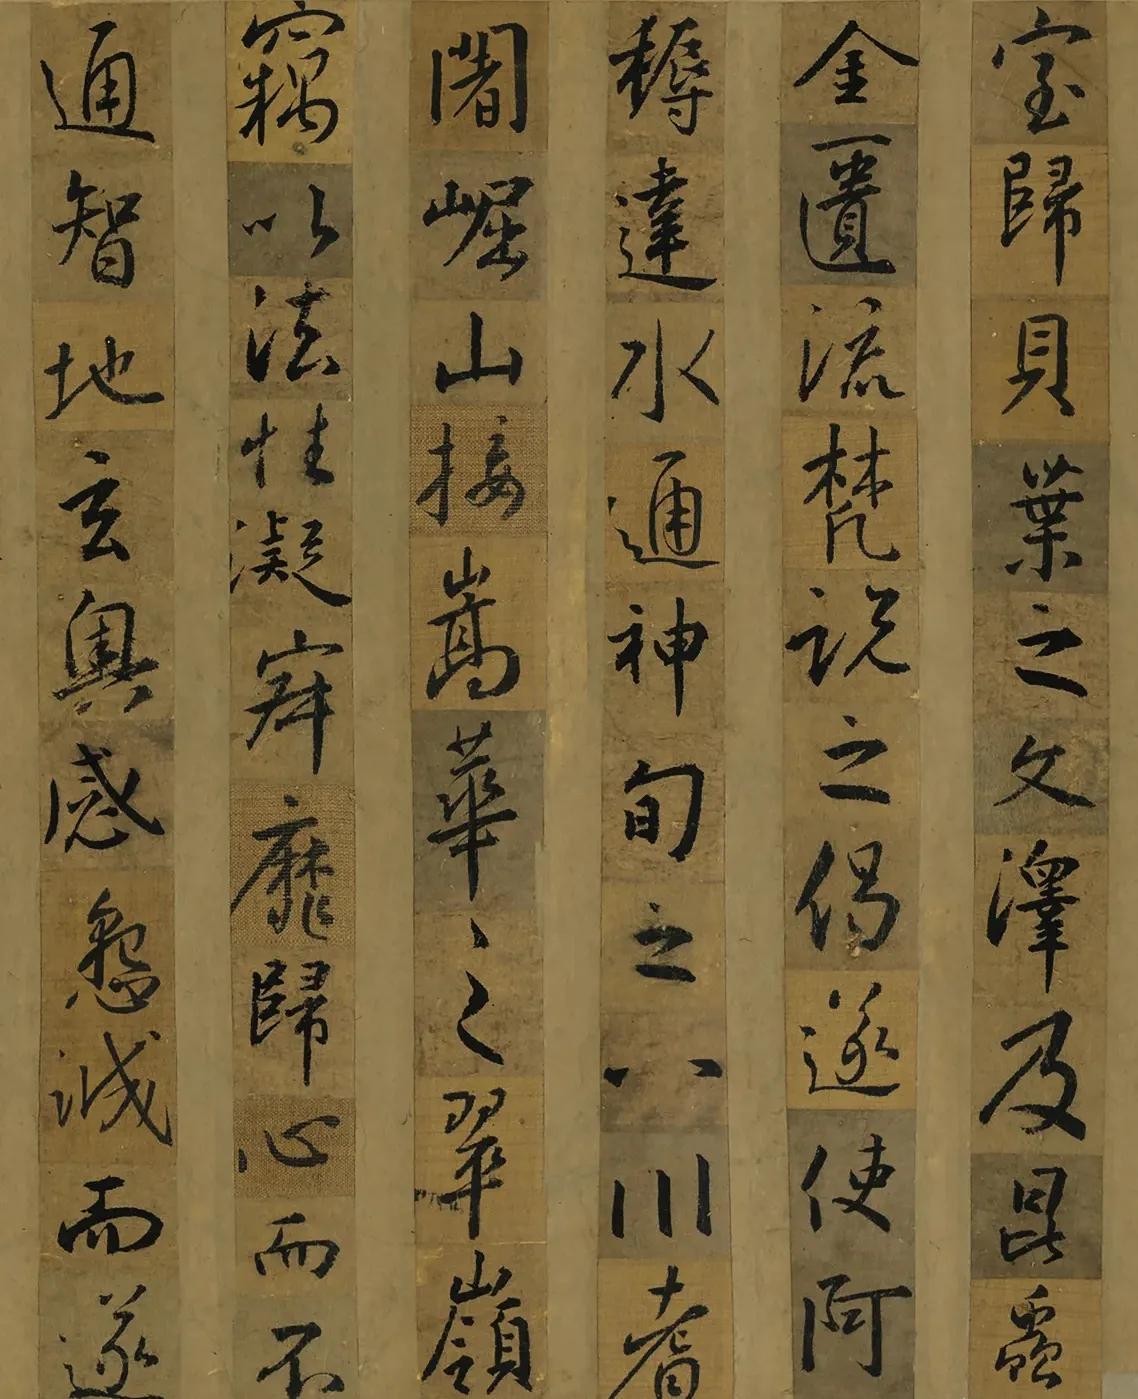 室歸貝葉之文澤及昆蟲
金匱流梵說之偈遂使阿
耨達水通神旬之八川耆
闍崛山接嵩華之翠嶺
竊以法性凝寂靡歸心而不
通智地玄奧感懇誠而遂